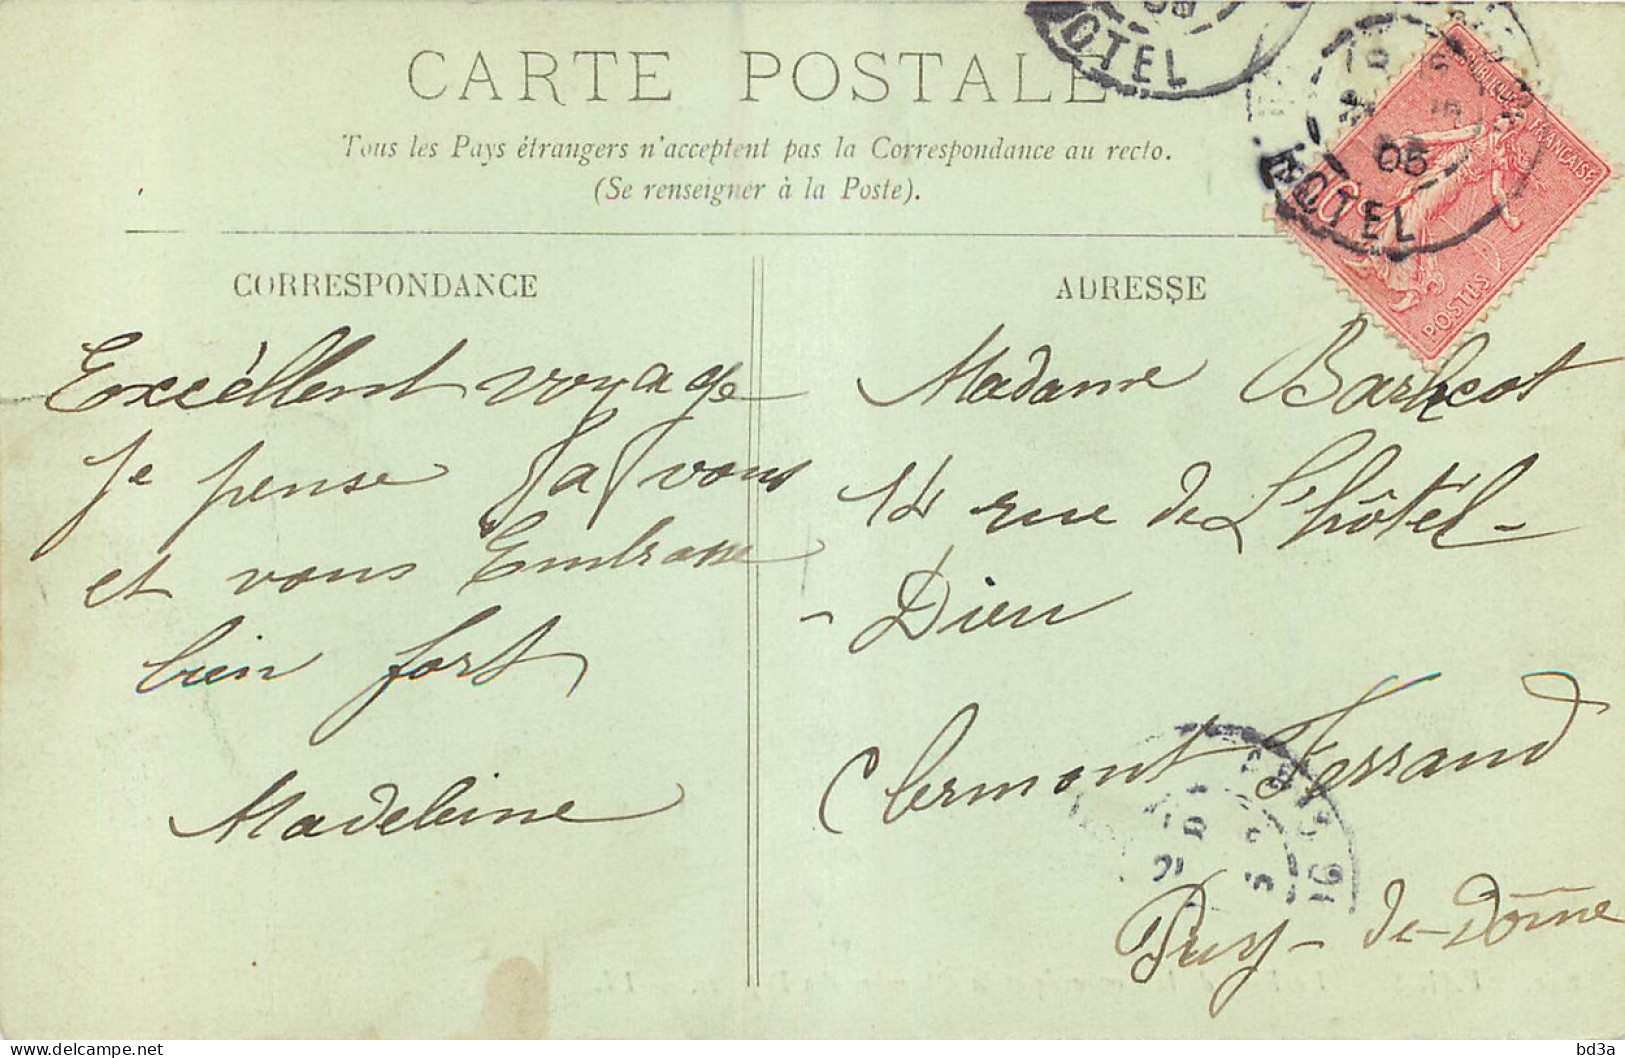 CARTE POSTALE
Tous les Pays étrangers n'acceptent pas la Correspondance au recto.
(Se renseigner à la Poste).
CORRESPONDANCE
Excéllent voyage
je pense
a
vous
et vous Embrasse
bien fort
Madeleine
ADRESSE
Madame
14 rue de L'hôtel-
-Dieu
Clermont Ferrand
Puy-de-Dôme
HOTEL
05
HOTEL
FRANÇAISE
10
POSTES
delcampe.net
bd3a